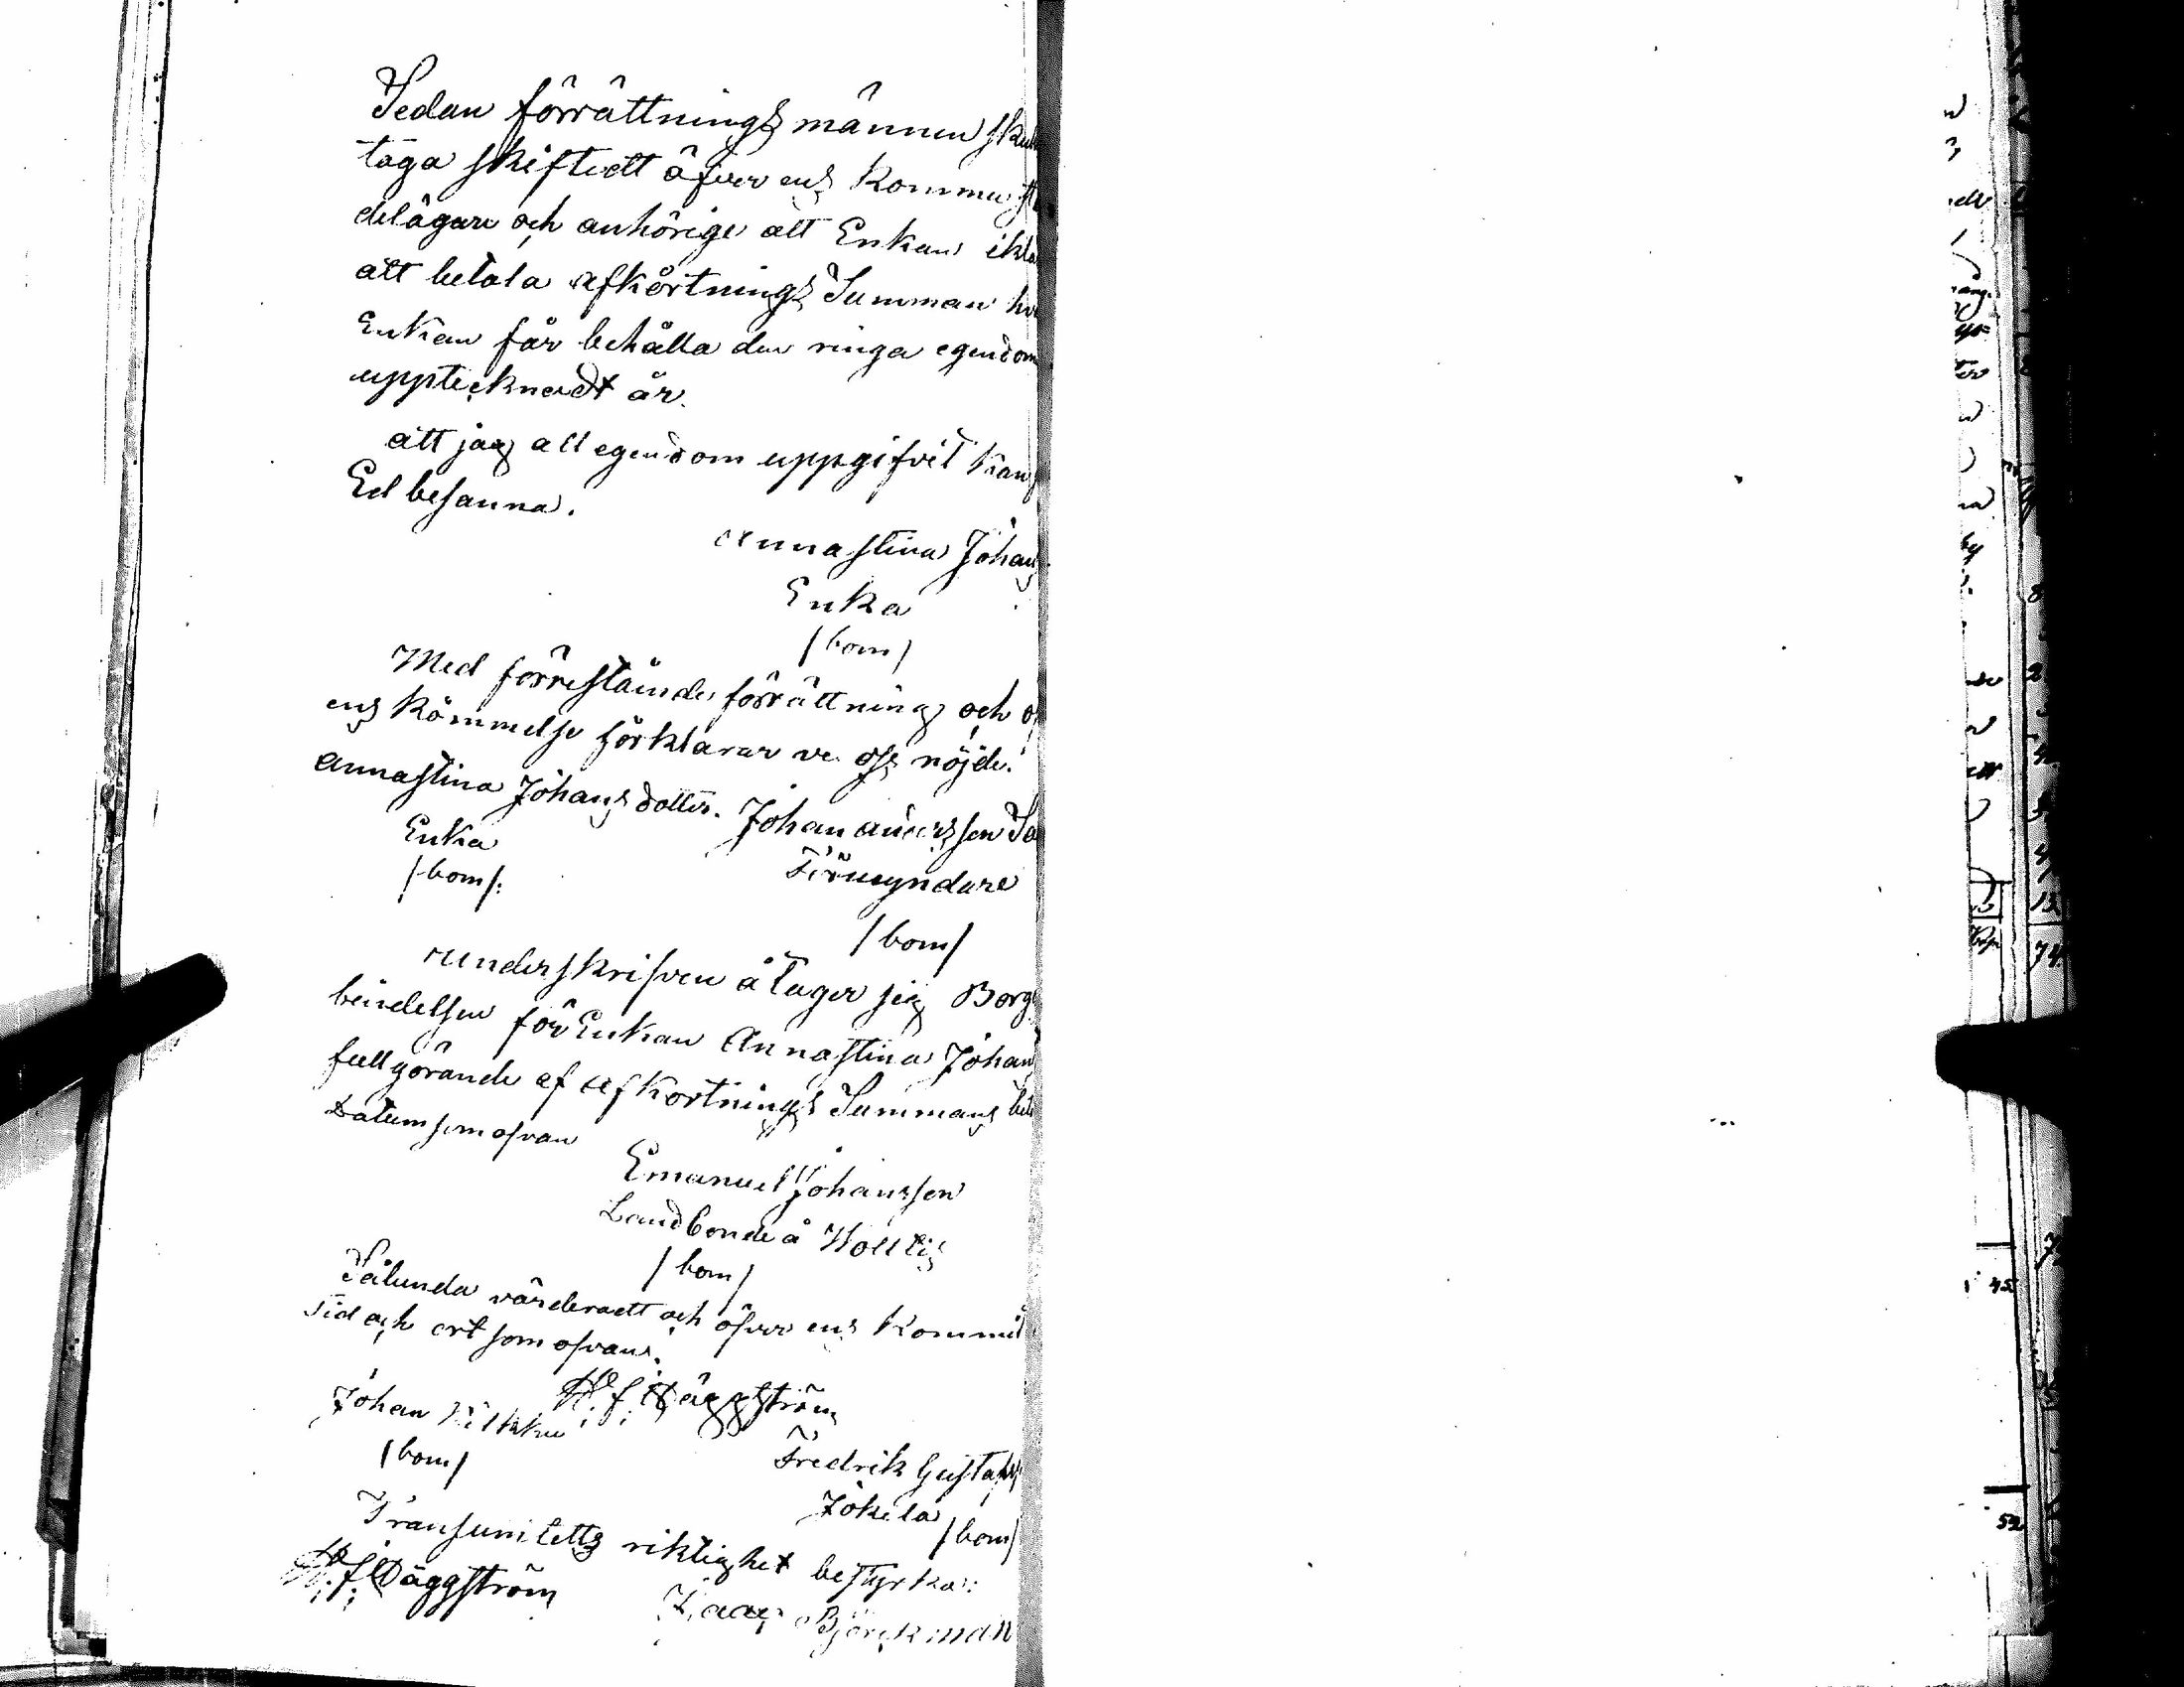 Sedan förrättnings männen sku
taga skiftett öfver ens komma st
delägare och anhörige att Enkan ikla
att betala afkortnings Summan hv
Enkan får behålla den ringa egendom
upptecknadt är.
att jag all egendom uppgifvit kan
Ed besanna.
Annastina Johans
Enka
/bom/
Med förrestående förrättning och öf
ens kommelse förklarar vi oss nöjde.
Annastina Johansdotter. Johan Andersson Sa
Enka
Förmyndare
/bom/:
/bom/
underskrifven åtager sig Borg
bindelsen för Enkan Annastina Johans
fullgörande af afkortnings Summans bet
Datum som ofvan
Emanuel Johansson
Landbonde å
/bom/
Sålunda värderaett och öfver ens kommit
tid och ort som ofvan.
H. f. Häggström
Johan
/bom/
Fredrik Gustafs
Jokela
/bom/
Transumtetts riktighet bestyrka:
H. f. Häggström
Isaac Björckman